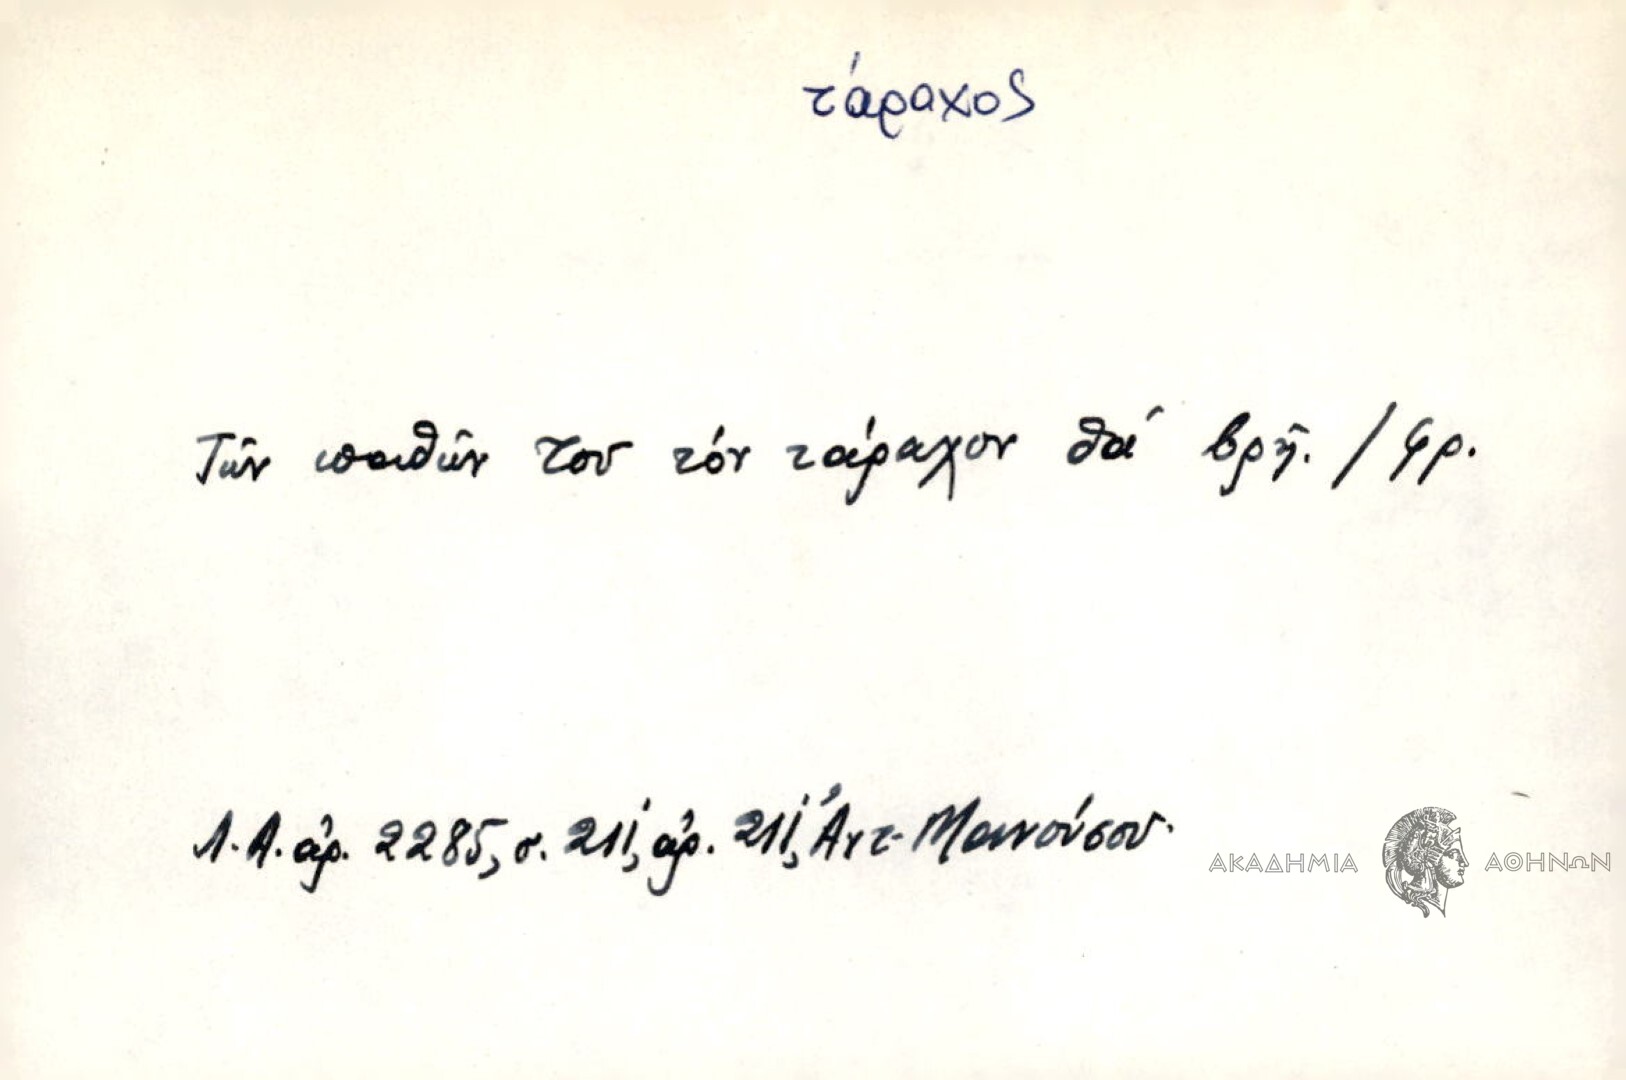 τάραχος
Τῶν παθῶν του τόν τάραχον θά βρῇ. / Φρ.
Λ.Α. ἀρ. 2285, σ. 211, ἀρ. 211, Ἀντ. Μανούσου.
ΑΚΑΔΗΜΙΑ ΑΘΗΝΩΝ